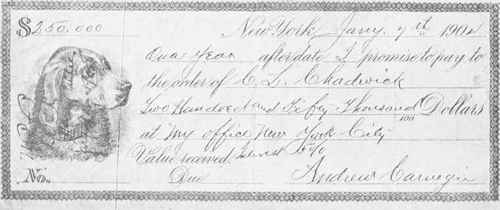 $250.000 New York Jany. 7th 1904
One Year after date I promise to pay to
the order of C. L. Chadwick
Two Hundred and Fifty Thousand 100 Dollars
at my office New York City
Value received Interest 5%
No. Due Andrew Carnegie